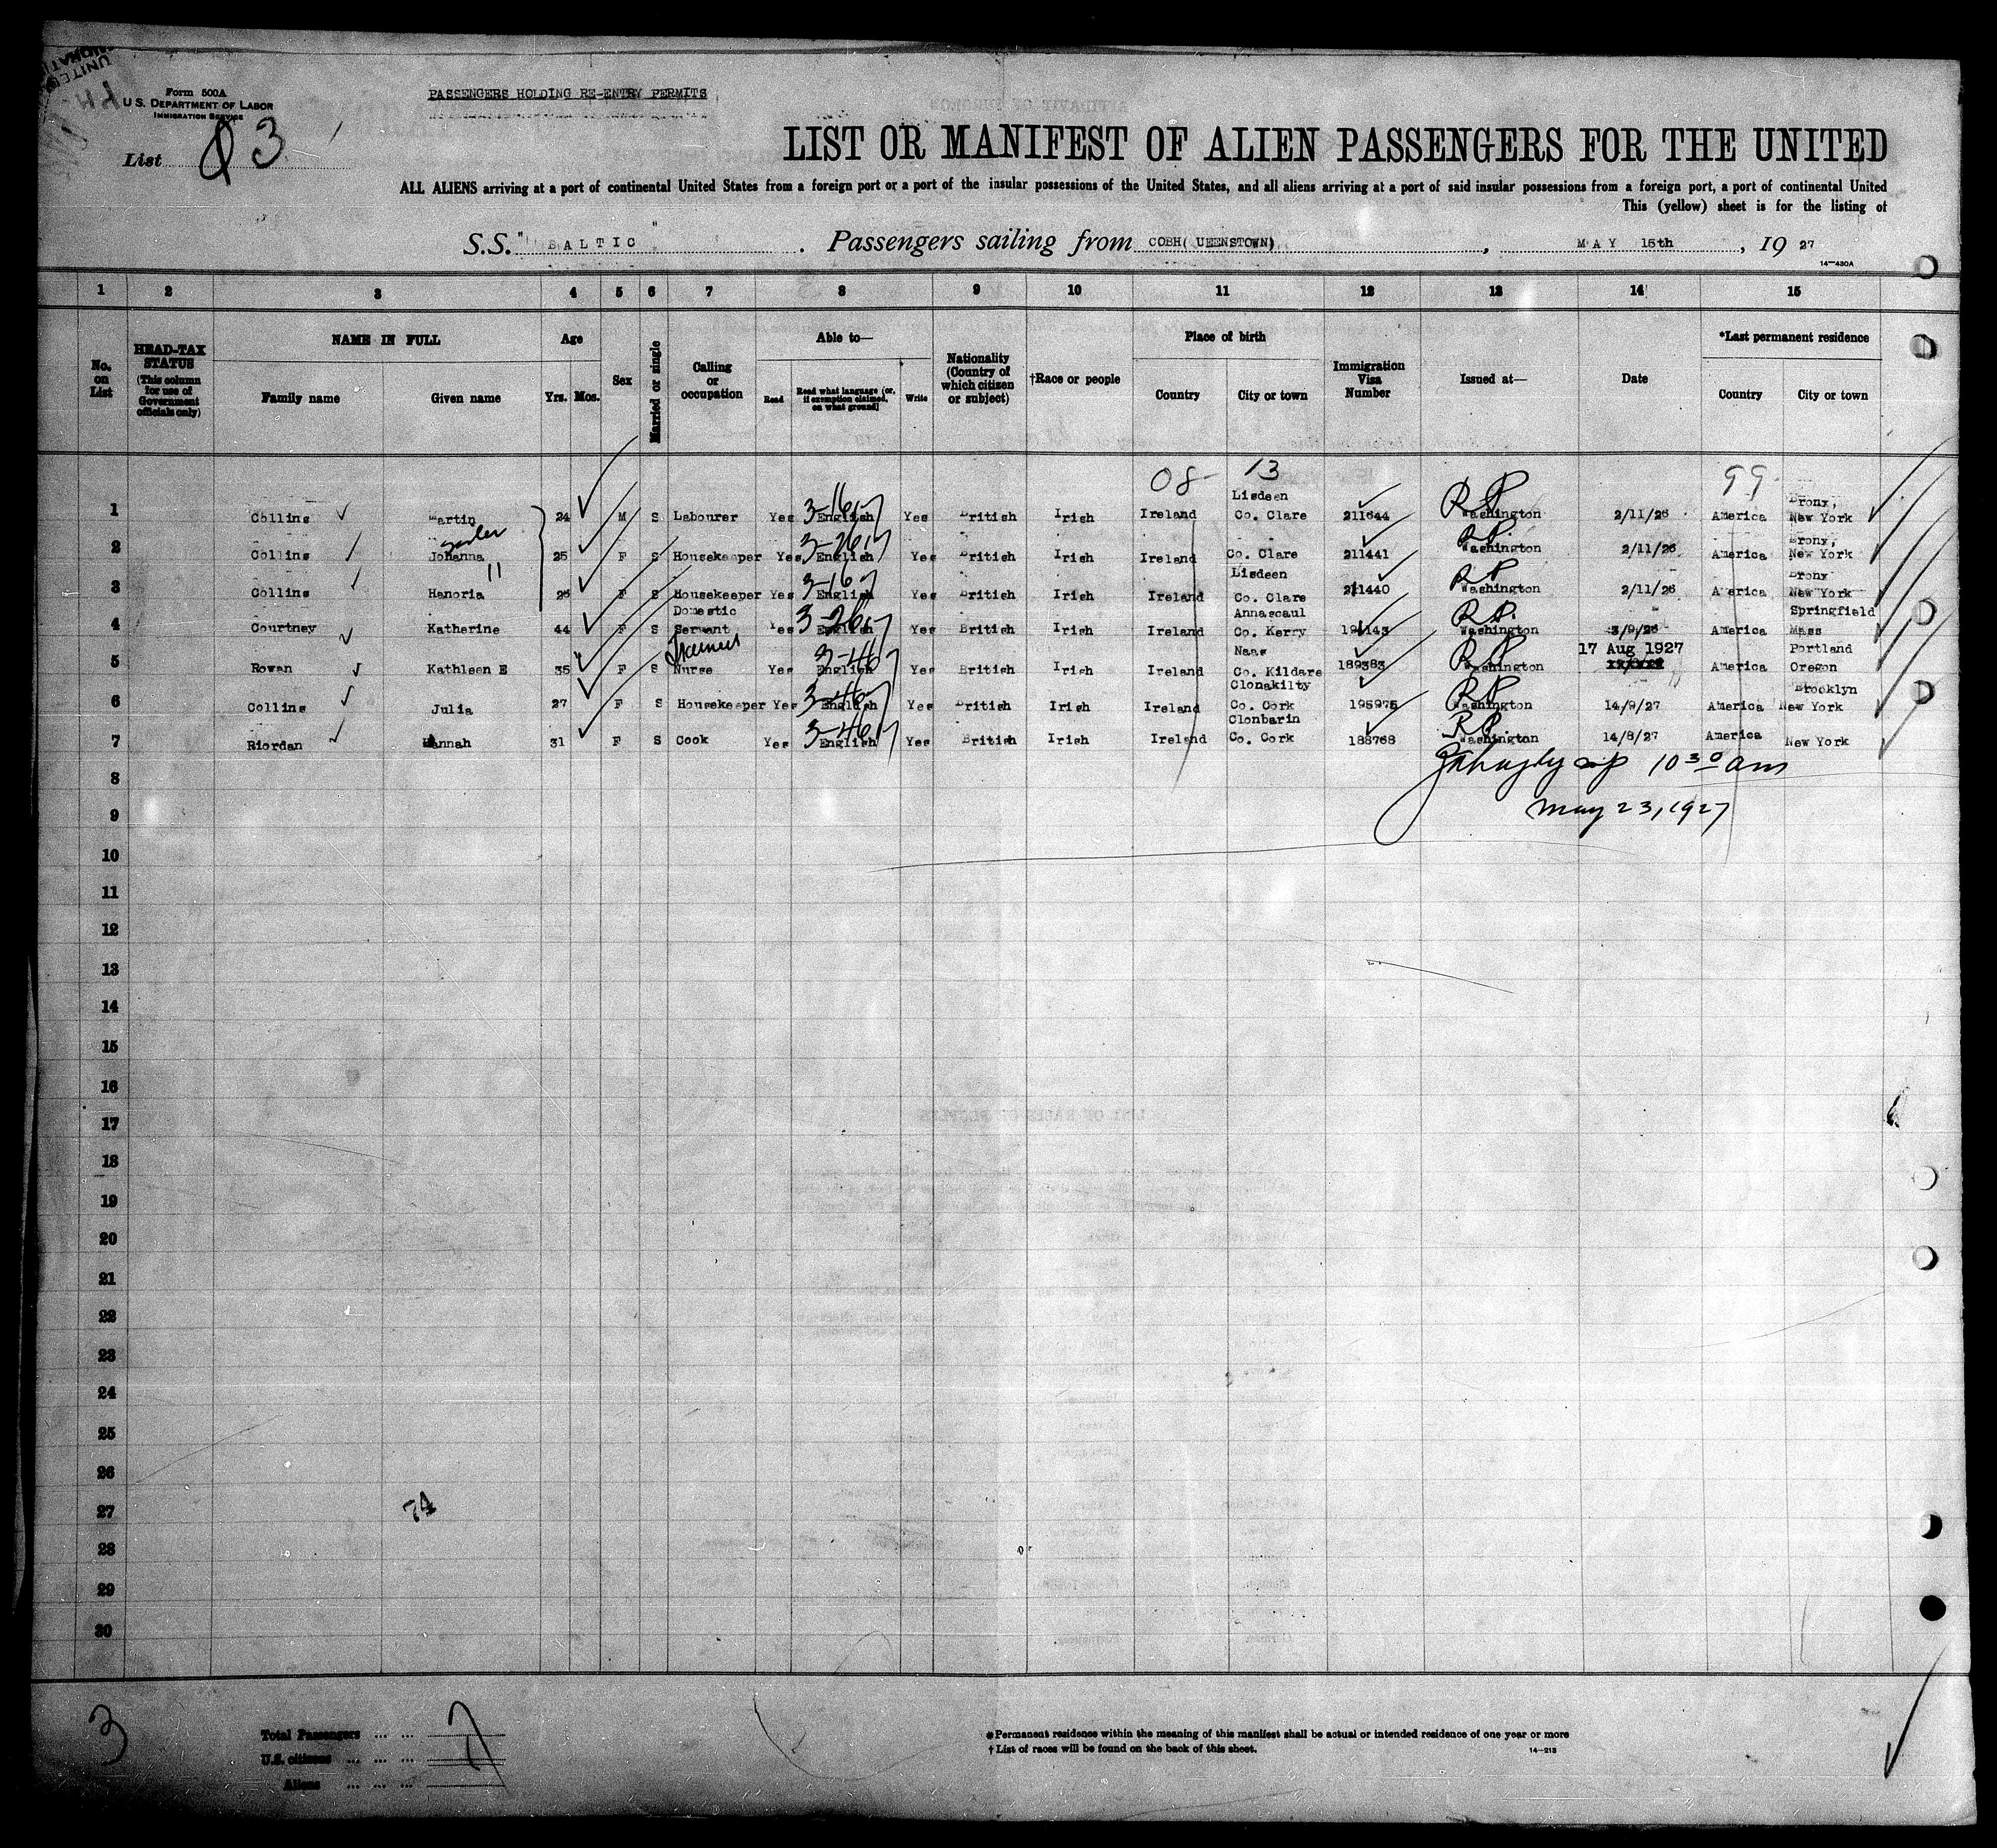 Form 500A
U.S. DEPARTMENT OF LABOR
IMMIGRATION SERVICE
PASSENGERS HOLDING RE-ENTRY PERMITS
List 3
LIST OR MANIFEST OF ALIEN PASSENGERS FOR THE UNITED
ALL ALIENS arriving at a port of continental United States from a foreign port or a port of the insular possessions of the United States, and all aliens arriving at a port of said insular possessions from a foreign port, a port of continental United
This (yellow) sheet is for the listing of
S.S. "BALTIC". Passengers sailing from COBH( UEENSTOWN), MAY 15th, 19 27
14—430A
1 2 3 4 5 6 7 8 9 10 11 12 13 14 15
No. on List
HEAD-TAX STATUS (This column for use of Government officials only)
NAME IN FULL
Family name Given name
Age
Yrs. Mos.
Sex
Married or single
Calling or occupation
Able to—
Read
Read what language [or, if exemption claimed, on what ground]
Write
Nationality (Country of which citizen or subject)
†Race or people
Place of birth
Country City or town
Immigration Visa Number
Issued at—
Date
*Last permanent residence
Country City or town
08- 13 99
1 Collins Martin 24 M S Labourer Yes English Yes British Irish Ireland Lisdeen Co. Clare 211644 RP Washington 2/11/26 America Bronx, New York
2 Collins Johanna 25 F S Housekeeper Yes English Yes British Irish Ireland Co. Clare 211441 RP. Washington 2/11/26 America Bronx, New York
3 Collins Hanoria 26 F S Housekeeper Yes English Yes British Irish Ireland Lisdeen Co. Clare 211440 RP Washington 2/11/26 America Bronx New York
4 Courtney Katherine 44 F S Domestic Servant Yes English Yes British Irish Ireland Annascaul Co. Kerry RP. Washington 3/9/26 America Springfield Mass
5 Rowan Kathleen E 35 F S Trained Nurse Yes English Yes British Irish Ireland Naas Co. Kildare 189383 RP Washington 17 Aug 1927 America Portland Oregon
6 Collins Julia 27 F S Housekeeper Yes English Yes British Irish Ireland Clonakilty Co. Cork 195975 RP Washington 14/9/27 America Brooklyn New York
7 Riordan Hannah 31 F S Cook Yes English Yes British Irish Ireland Clonbarin Co. Cork 188768 RP Washington 14/8/27 America New York
8
10 30 am
9
May 23, 1927
10
11
12
13
14
15
16
17
18
19
20
21
22
23
24
25
26
27
74
28
29
30
3
Total Passengers ... ... 7
U.S. citizens ... ... ...
Aliens ... ... ...
*Permanent residence within the meaning of this manifest shall be actual or intended residence of one year or more
†List of races will be found on the back of this sheet.
14—213